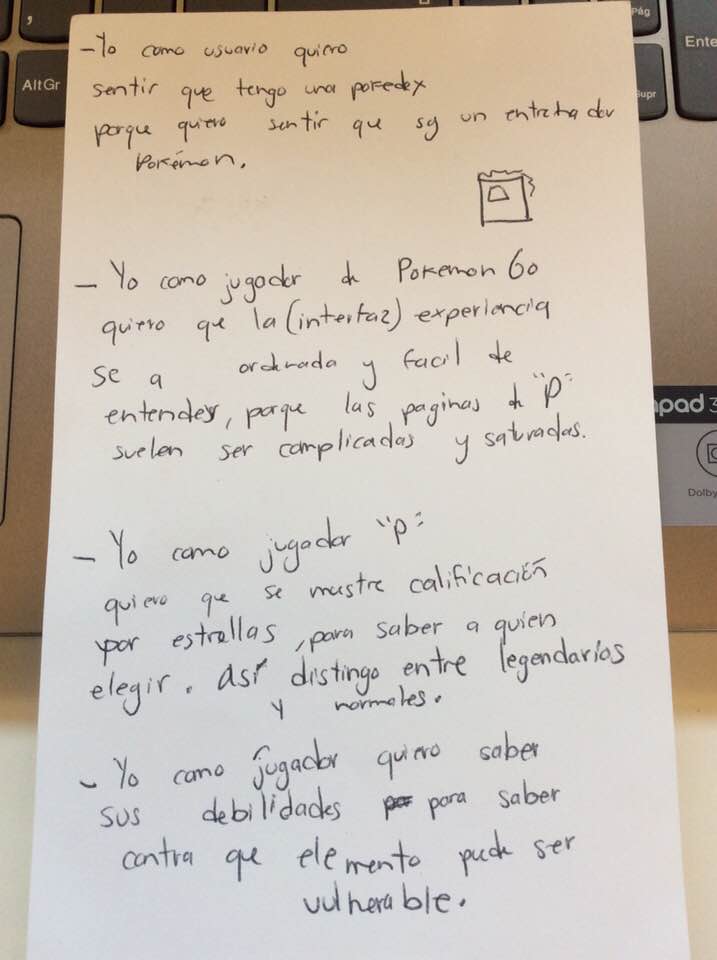 ,
AltGr
Pág
Ente
Supr
- Yo como usuario quiero
sentir que tengo una pokedex
porque quiero sentir que soy un entrenador
Pokémon.
- Yo como jugador de Pokemon Go
quiero que la (interfaz) experiencia
se a ordenada y facil de
entender, porque las paginas de "P"
suelen ser complicadas y saturadas.
- Yo como jugador "P"
quiero que se mustre calificación
por estrellas, para saber a quien
elegir. así distingo entre legendarios
y normales.
- Yo como jugador quiero saber
sus debilidades para saber
contra que elemento puede ser
vulnerable.
pad 3
Dolby